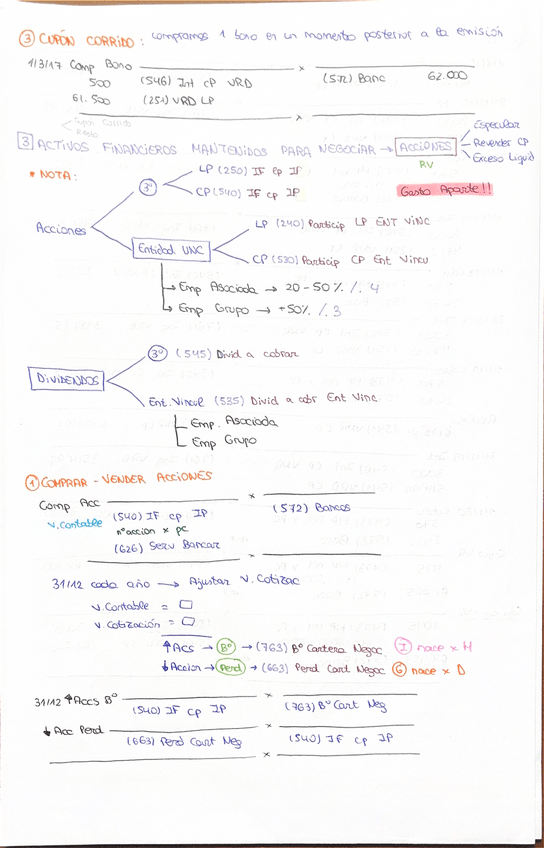 ③ CUPÓN CORRIDO: compramos 1 bono en un momento posterior a la emisión
1/3/17 Comp Bono x
500 (546) Int cP VRD (572) Banc 62.000
61.500 (251) VRD LP
Cupón Corrido
Resto
x
3 ACTIVOS FINANCIEROS MANTENIDOS PARA NEGOCIAR → ACCIONES
Especular
Revender CP
Exceso Liquid
RV
Gasto Aparte!!
* NOTA:
Acciones
3º
LP (250) IF lp IP
CP (540) IF cp IP
Entidad VNC
LP (240) Particip LP ENT VINC
CP (530) Particip CP Ent Vincu
→ Emp Asociada → 20-50% /. 4
→ Emp Grupo → +50% /. 3
DIVIDENDOS
3º (545) Divid a cobrar
Ent. Vincul (535) Divid a cobr Ent Vinc.
Emp. Asociada
Emp Grupo
① COMPRAR - VENDER ACCIONES
Comp Acc x
V. Contable (540) IF cp IP (572) Bancos
nº acción x pc
(626) Serv Bancar
x
31/12 cada año → Ajustar V. Cotizac
V. Contable = □
V. Cotización = □
↑Accs → Bº → (763) Bº Cartera Negoc I nace x H
↓Accion → Perd → (663) Perd Cart Negoc G nace x D
31/12 ↑Accs Bº x
(540) IF cp IP (763) Bº Cart Neg
↓ Acc Perd x
(663) Perd Cart Neg (540) IF cp IP
x